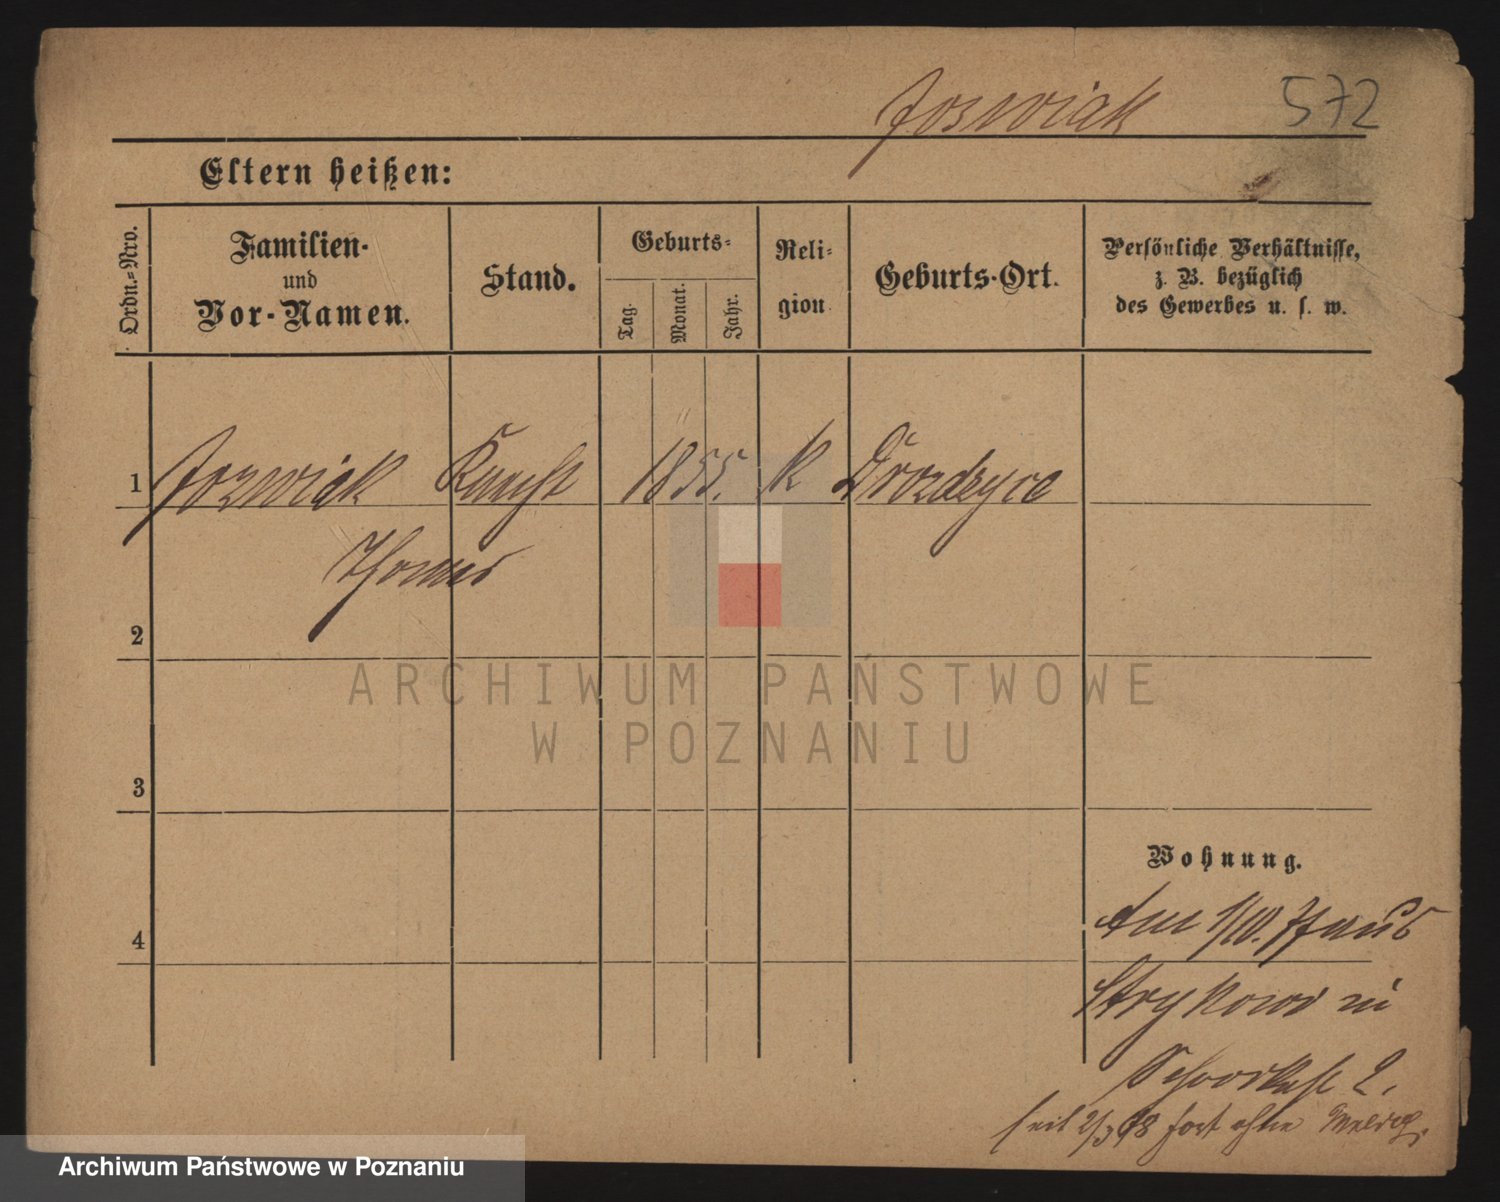 Jozwiak 572
Eltern heißen:
Ordn.=Nro.
Familien-
und
Vor-Namen.
Stand.
Geburts=
Tag.
Monat.
Jahr.
Reli-
gion
Geburts-Ort.
Persönliche Verhältnisse,
z. B. bezüglich
des Gewerbes u. s. w.
1 Jozwiak Knecht 1855. K Drozdzyce
Thomas
2
ARCHIWUM PAŃSTWOWE
W POZNANIU
3
Wohnung.
4
Am 1/10.
Strykowo
2.
seit 2/3 98 fort ohne
Archiwum Państwowe w Poznaniu